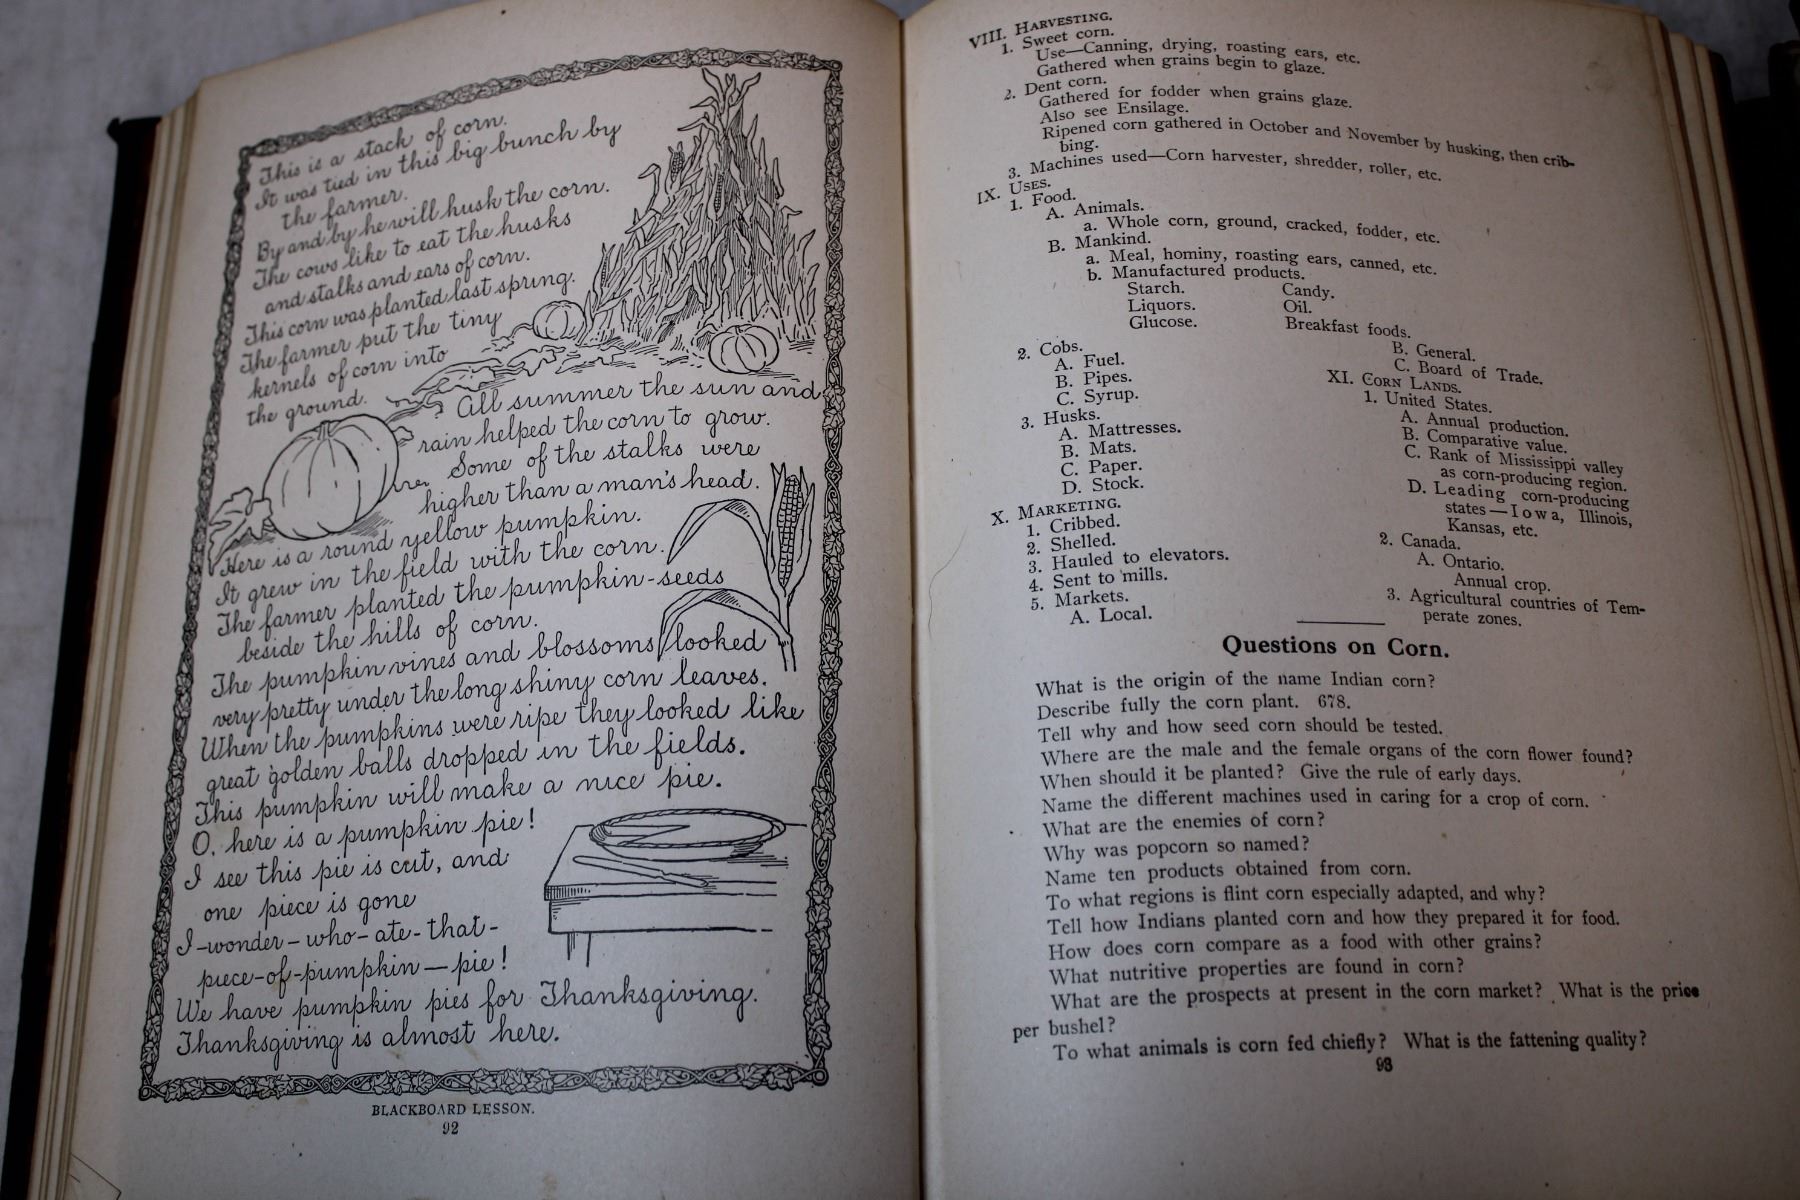 This is a stack of corn.
It was tied in this big bunch by
the farmer.
By and by he will husk the corn.
The cows like to eat the husks
and stalks and ears of corn.
This corn was planted last spring.
The farmer put the tiny
kernels of corn into
the ground.
All summer the sun and
rain helped the corn to grow.
Some of the stalks were
higher than a man's head.
Here is a round yellow pumpkin.
It grew in the field with the corn.
The farmer planted the pumpkin-seeds
beside the hills of corn.
The pumpkin vines and blossoms looked
very pretty under the long shiny corn leaves.
When the pumpkins were ripe they looked like
great golden balls dropped in the fields.
This pumpkin will make a nice pie.
O, here is a pumpkin pie!
I see this pie is cut, and
one piece is gone
I-wonder-who-ate-that-
piece-of-pumpkin—pie!
We have pumpkin pies for Thanksgiving.
Thanksgiving is almost here.
BLACKBOARD LESSON.
92
VIII. HARVESTING.
1. Sweet corn.
Use—Canning, drying, roasting ears, etc.
Gathered when grains begin to glaze.
2. Dent corn.
Gathered for fodder when grains glaze.
Also see Ensilage.
Ripened corn gathered in October and November by husking, then crib-
bing.
3. Machines used—Corn harvester, shredder, roller, etc.
IX. USES.
1. Food.
A. Animals.
a. Whole corn, ground, cracked, fodder, etc.
B. Mankind.
a. Meal, hominy, roasting ears, canned, etc.
b. Manufactured products.
Starch. Candy.
Liquors. Oil.
Glucose. Breakfast foods.
2. Cobs.
A. Fuel.
B. Pipes.
C. Syrup.
3. Husks.
A. Mattresses.
B. Mats.
C. Paper.
D. Stock.
X. MARKETING.
1. Cribbed.
2. Shelled.
3. Hauled to elevators.
4. Sent to mills.
5. Markets.
A. Local.
B. General.
C. Board of Trade.
XI. CORN LANDS.
1. United States.
A. Annual production.
B. Comparative value.
C. Rank of Mississippi valley
as corn-producing region.
D. Leading corn-producing
states—Iowa, Illinois,
Kansas, etc.
2. Canada.
A. Ontario.
Annual crop.
3. Agricultural countries of Tem-
perate zones.
Questions on Corn.
What is the origin of the name Indian corn?
Describe fully the corn plant. 678.
Tell why and how seed corn should be tested.
Where are the male and the female organs of the corn flower found?
When should it be planted? Give the rule of early days.
Name the different machines used in caring for a crop of corn.
What are the enemies of corn?
Why was popcorn so named?
Name ten products obtained from corn.
To what regions is flint corn especially adapted, and why?
Tell how Indians planted corn and how they prepared it for food.
How does corn compare as a food with other grains?
What nutritive properties are found in corn?
What are the prospects at present in the corn market? What is the price
per bushel?
To what animals is corn fed chiefly? What is the fattening quality?
93